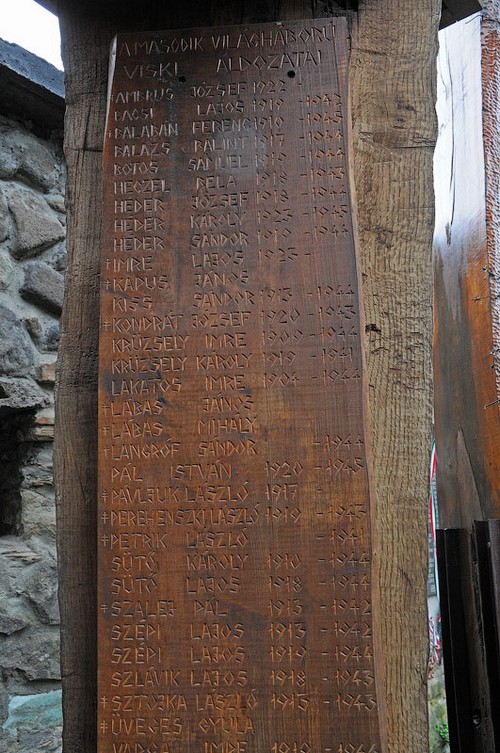 A MÁSODIK VILÁGHÁBORÚ
VISKI ÁLDOZATAI
‡AMBRUS JÓZSEF 1922 -
BACSI LAJOS 1919 - 1942
‡BALABÁN FERENC 1910 - 1945
BALÁZS BÁLINT 1917 - 1944
BOTOS SAMUEL 1919 - 1944
HECZEL BÉLA 1918 - 1943
HÉDER JÓZSEF 1918 - 1944
HÉDER KÁROLY 1923 - 1945
HÉDER SÁNDOR 1919 - 1944
‡IMRE LAJOS 1925 -
‡KAPUS JÁNOS
KISS SÁNDOR 1913 - 1944
‡KONDRÁT JÓZSEF 1920 - 1943
KRÜZSELY IMRE 1909 - 1944
KRÜZSELY KÁROLY 1919 - 1941
LAKATOS IMRE 1904 - 1944
‡LABÁS JÁNOS
‡LABÁS MIHÁLY
‡LANGRÓF SÁNDOR - 1944
PÁL ISTVÁN 1920 - 1945
‡PAVLJUK LÁSZLÓ 1917 -
‡PEREHENSZKI LÁSZLÓ 1919 - 1945
‡PETRIK LÁSZLÓ - 1941
SÜTŐ KÁROLY 1910 - 1944
SÜTŐ LAJOS 1918 - 1944
‡SZALEJ PÁL 1913 - 1942
SZÉPI LAJOS 1913 - 1942
SZÉPI LAJOS 1919 - 1944
SZLÁVIK LAJOS 1918 - 1943
‡SZTOJKA LÁSZLÓ 1915 - 1943
‡ÜVEGES GYULA
VARGA IMRE 1910 - 1944